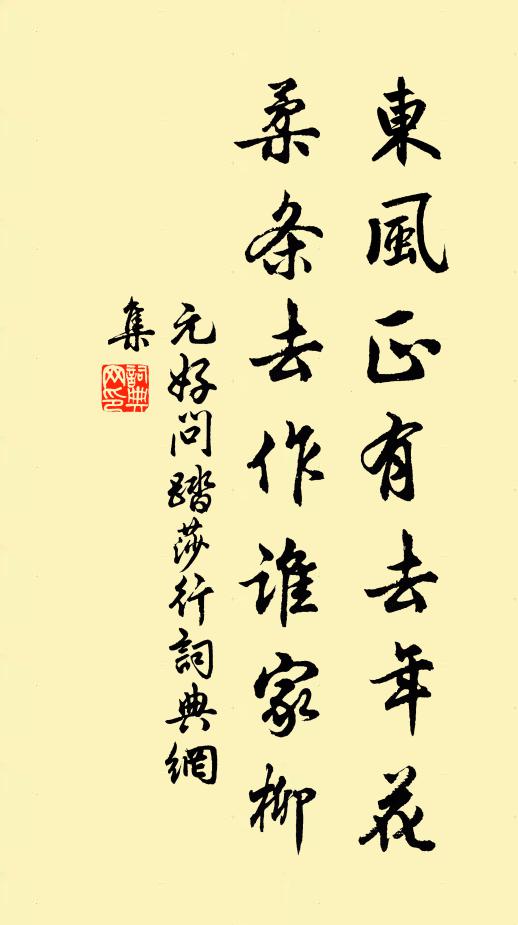 東風正有去年花
柔条去作誰家柳
元好問踏莎行詞典網
集
詞典网印